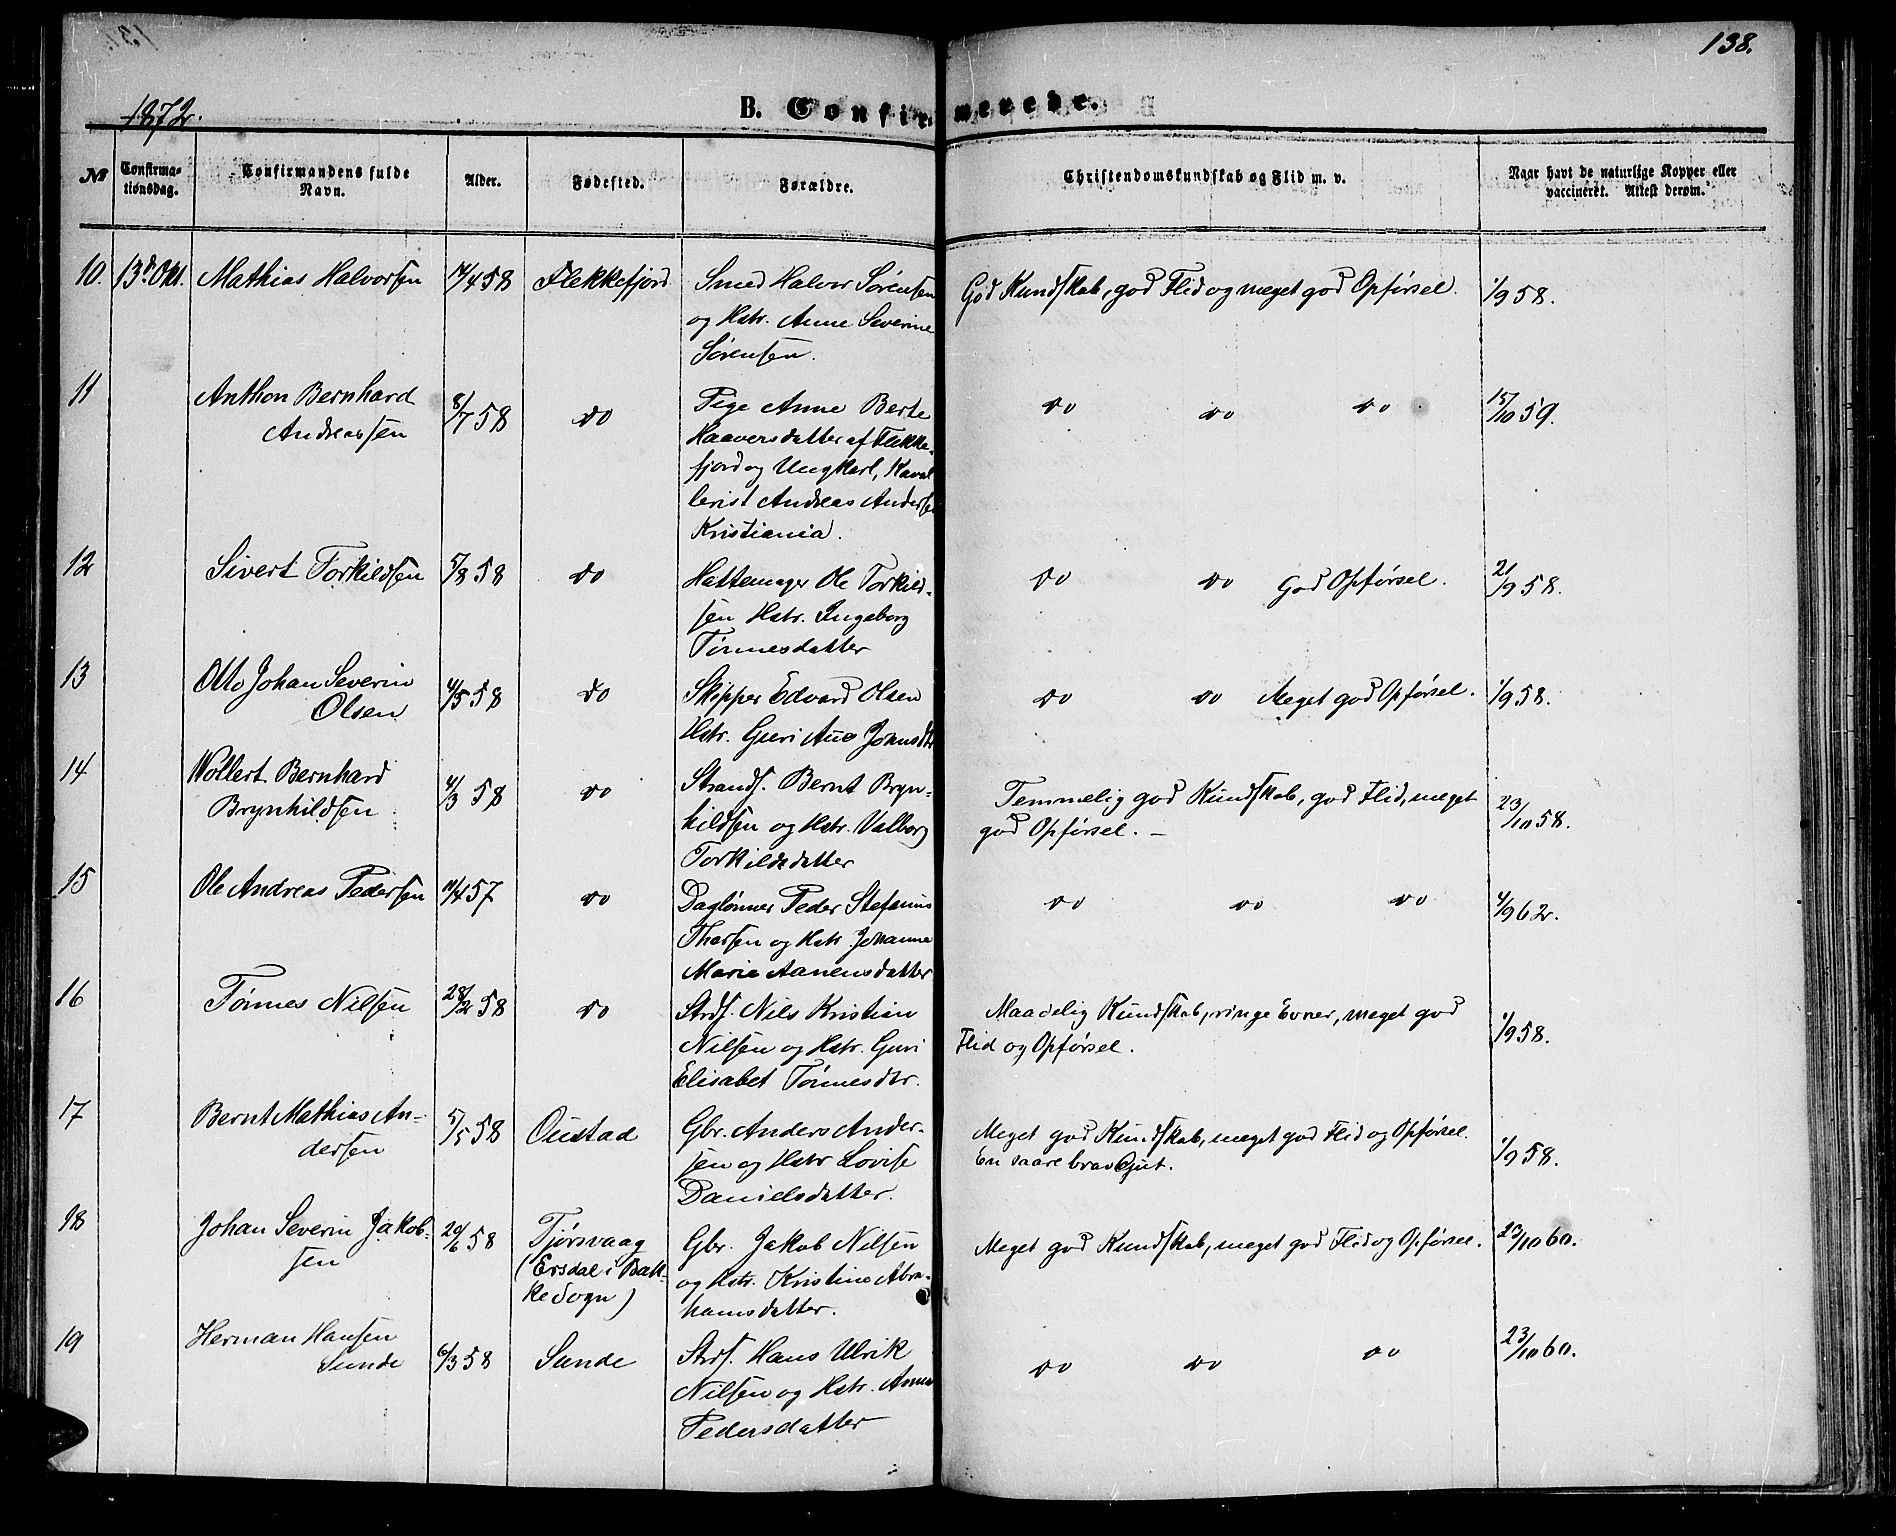 138.
1872.
B. Confirmerede.
No
Confirma-
tionsdag.
Confirmandens fulde
Navn.
Alder.
Fødested.
Forældre.
Christendomskundskab og Flid m. v.
Naar havt de naturlige Kopper eller
vaccineret. Attest derom.
10. 13d Okt. Mathias Halvorsen 14/4 58 Flekkefjord Smed Halvor Sørensen God Kundskab, god Flid og meget god Opførsel. 1/9 58.
og Hstr. Anne Severine
Sørensen.
11 Anthon Bernhard 8/7 58 do Pige Anne Berte do do do 15/10 59.
Andreassen Haaversdatter af Flekke-
fjord og Ungkarl, Kaval
lerist Andreas Andersen
Kristiania.
12 Sivert Torkildsen 5/8 58 do Hattemager Ole Torkild- do do God Opførsel. 21/9 58.
sen Hstr. Ingeborg
Tønnesdatter
13 Otto Johan Severin 4/5 58 do Skipper Edvard Olsen do do Meget god Opførsel. 1/9 58.
Olsen Hstr. Guri Jonasdtr
14 Wollert Bernhard 4/3 58 do Strands. Bernt Bryn- Temmelig god Kundskab, god Flid, meget 23/10 58.
Brynhildsen hildsen og Hstr. Valborg god Opførsel. –
Torkildsdatter
15 Ole Andreas Pedersen 11/4 57 do Daglønner Peder Stefanus do do do 4/9 62.
Thorsen og Hstr. Johanne
Marie Aanensdatter
16 Tønnes Nilsen 28/2 58 do Strds. Nils Kristian Maadelig Kundskab, ringe Evner, meget god 1/9 58.
Nilsen og Hstr. Guri Flid og Opførsel.
Elisabet Tønnesdtr.
17 Bernt Mathias An- 5/5 58 Oustad Gbr. Anders Ander- Meget god Kundskab, meget god Flid og Opførsel. 1/9 58.
dersen sen og Hstr Lovise En saare brav Gut.
Danielsdatter.
18 Johan Severin Jakob- 20/6 58 Tjørsvaag Gbr. Jakob Nilsen Meget god Kundskab, meget god Flid og Opførsel. 23/10 60.
sen (Ersdal i Bak- og Hstr. Kristine Abra-
ke Sogn) hamsdatter.
19 Herman Hansen 6/3 58 Sunde Strds. Hans Ulrik do do do 23/10 60.
Sunde Nilsen og Hstr. Anna
Pedersdatter